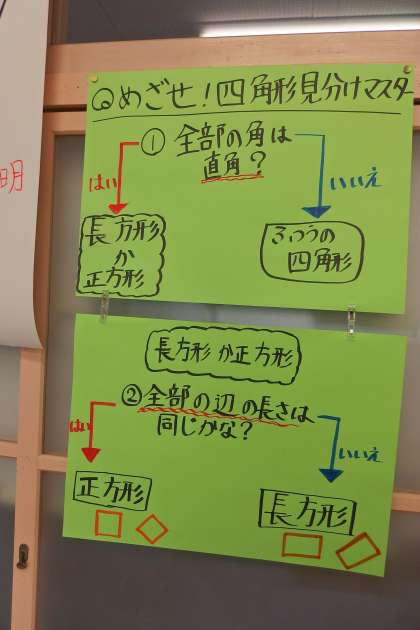 めざせ!四角形見分けマスター
① 全部の角は
直角?
はい
いいえ
長方形
か
正方形
ふつうの
四角形
長方形か正方形
②全部の辺の長さは
同じかな?
はい
いいえ
正方形
長方形
明